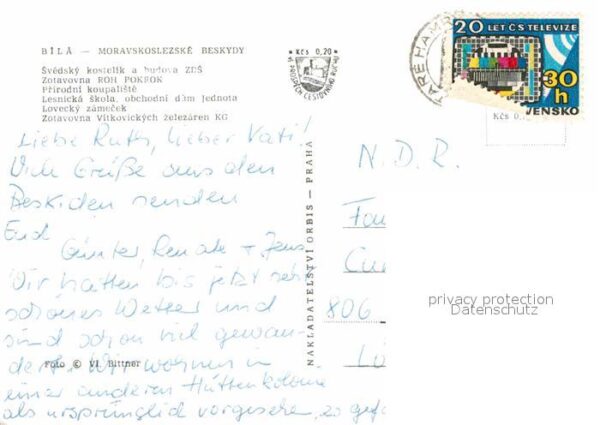 BÍLÁ — MORAVSKOSLEZSKÉ BESKYDY
Švédský kostelík a budova ZDŠ
Zotavovna ROH POKROK
Přírodní koupaliště
Lesnická škola, obchodní dům Jednota
Lovecký zámeček
Zotavovna Vítkovických železáren KG
* Kčs 0,20 *
VE PROSPĚCH CESTOVNÍHO RUCHU
STARÉ HAMRY
20 LET ČS TELEVIZE
30 h
VENSKO
Kčs 0,
Liebe Ruth, lieber Vati!
Viele Grüße aus den
Beskiden senden
Euch
Günter, Renate + Jens
Wir hatten bis jetzt sehr
schönes Wetter und
sind schon viel gewan-
dert. Wir wohnen in
einer anderen Hüttenkolonie
als ursprünglich vorgesehen, so
Foto © Vl. Bittner
NAKLADATELSTVÍ ORBIS — PRAHA
N.D.R.
Fa
Cu
806
privacy protection
Datenschutz